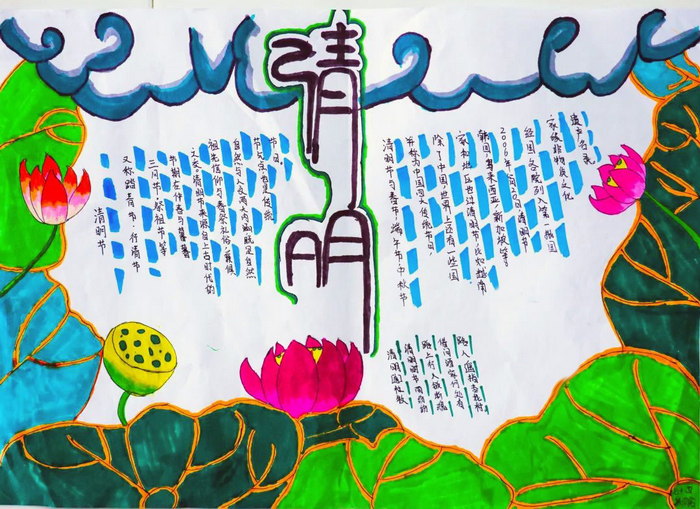 清明
清明节
又称踏青节、行清节
三月节、祭祖节等
节期在仲春与暮春
之交。清明节来源自上古时代的
祖先信仰与春祭礼俗,兼具
自然与人文两大内涵既是自然
节气点也是传统
节日
清明节与春节、端午节、中秋节
并称为中国四大传统节日,
除了中国,世界上还有一些国
家和地区也过清明节,比如越南
韩国、马来西亚、新加坡等。
2006年5月20日清明节
经国务院列入第一批国
家级非物质文化
遗产名录
清明 杜牧
清明时节雨纷纷
路上行人欲断魂
借问酒家何处有
路人遥指杏花村